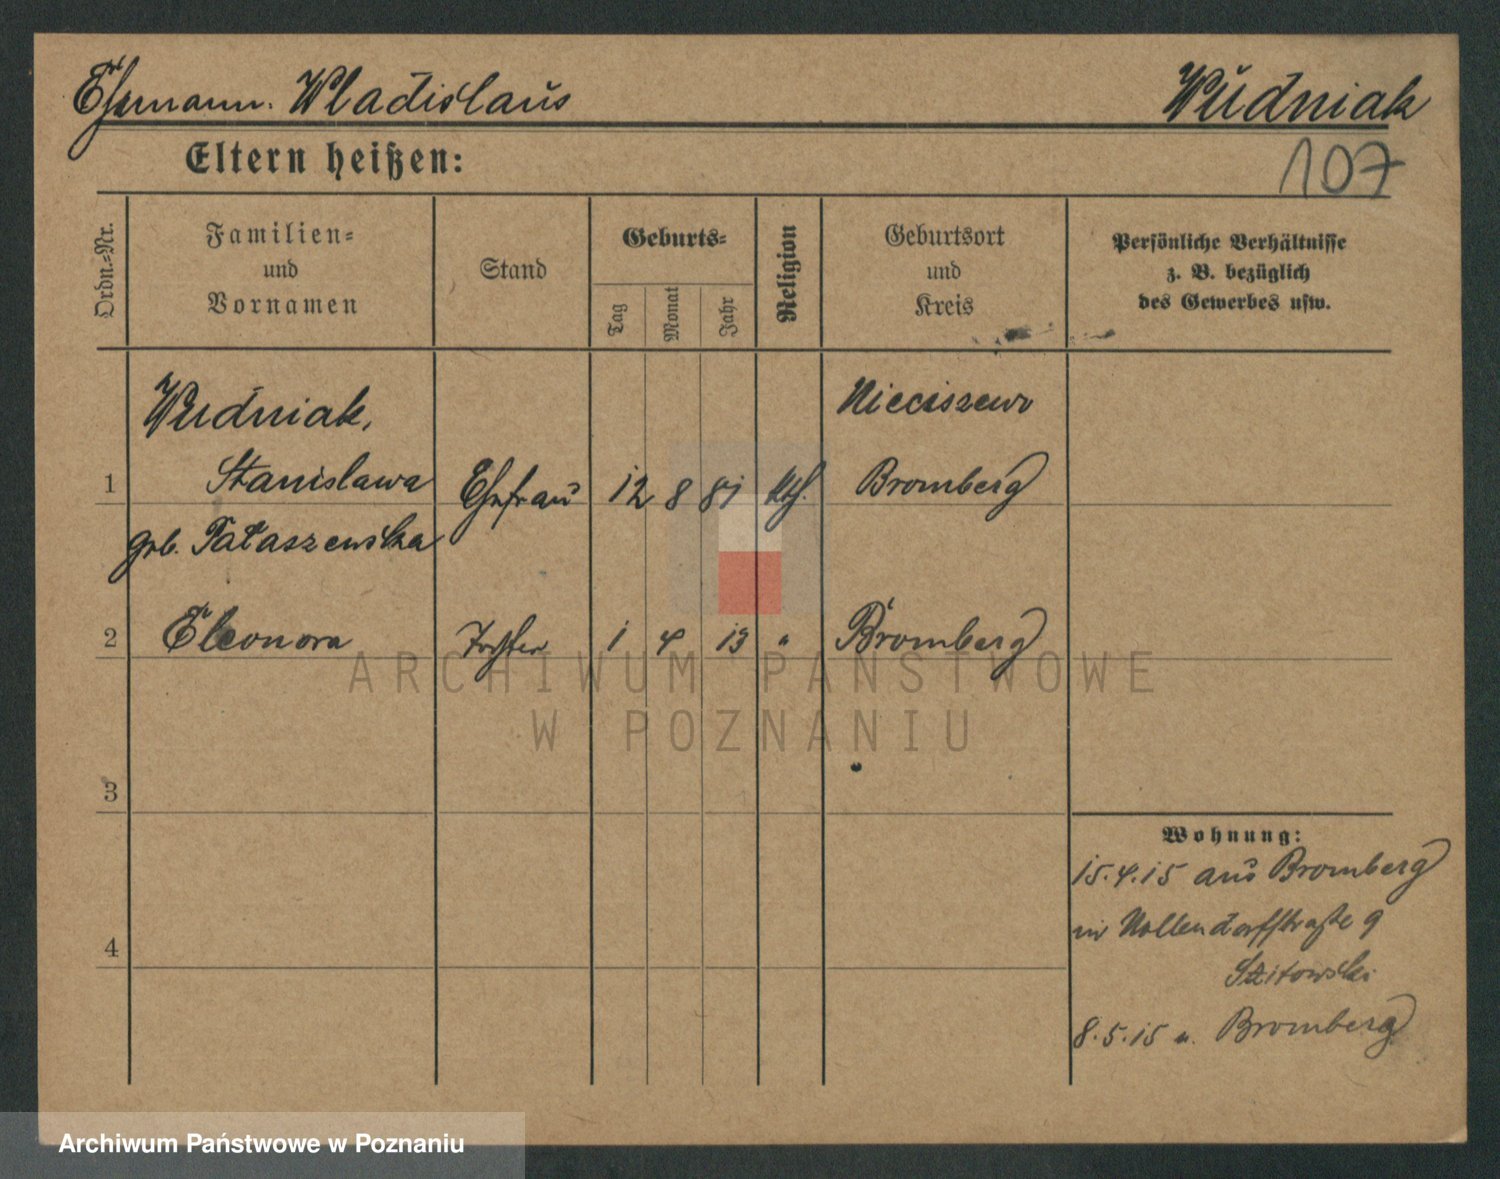 Ehemann. Wladislaus Wudniak
Eltern heißen: 107
Ordn.=Nr.
Familien=
und
Vornamen
Stand
Geburts=
Tag
Monat
Jahr
Religion
Geburtsort
und
Kreis
Persönliche Verhältnisse
z. B. bezüglich
des Gewerbes usw.
Wudniak, Nieciszewo
1 Stanislawa Ehefrau 12 8 81 kth. Bromberg
geb. Tataszewska
2 Eleonora Tochter 1 4 13 " Bromberg
ARCHIWUM PAŃSTWOWE
W POZNANIU
3
Wohnung:
15.4.15 aus Bromberg
in Nollendorfstraße 9
4
Szitowski
8.5.15 n. Bromberg
Archiwum Państwowe w Poznaniu